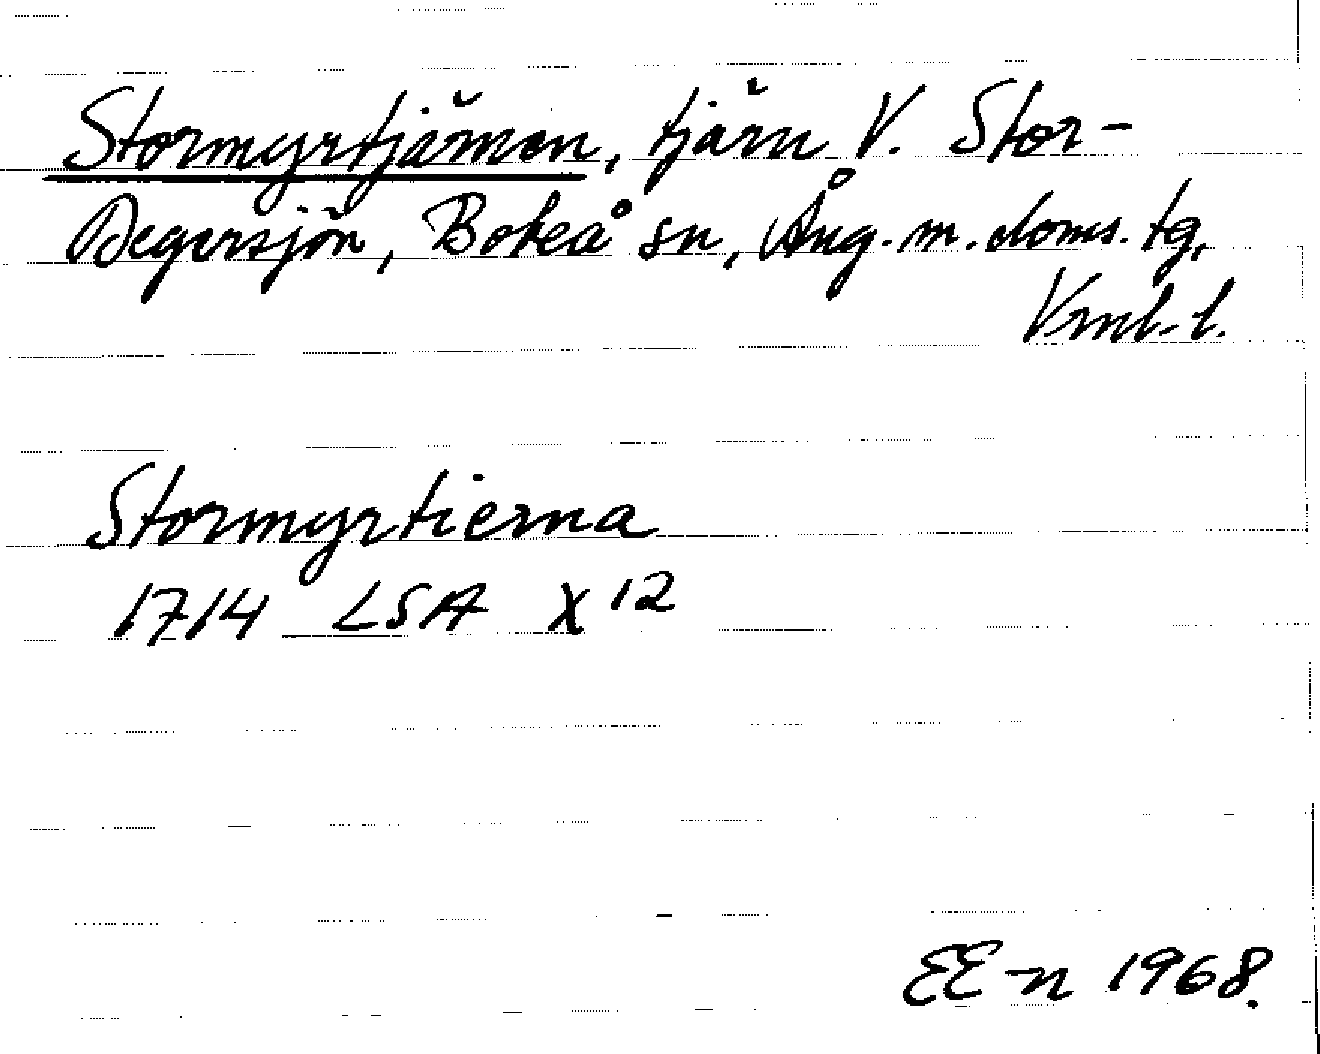 Stormyrtjärnen, tjärn V. Stor-
Degersjön, Boteå sn, Ång. m. doms. tg,
Vrnl. l.
Stormyrtierna
1714 LSA X 12
EE-n 1968.